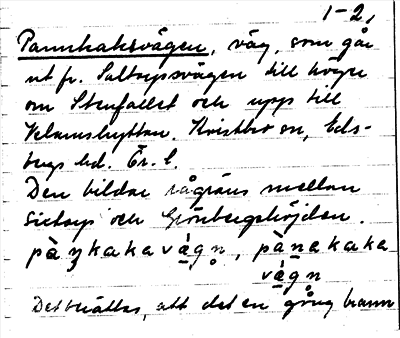 1-2,
Pannkaksvägen, väg, som går
ut fr. Saltorpsvägen till höger
om Stenfallet och upp till
Velamshyttan. Kvistbro sn, Eds-
bergs hd. Ör. l.
Den bildar rågräns mellan
Sixtorp och Grönbergshöjden.
pàŋkakavá̱gn̥, pà̱nakaka
vá̱gn
Det berättas, att det en gång brann